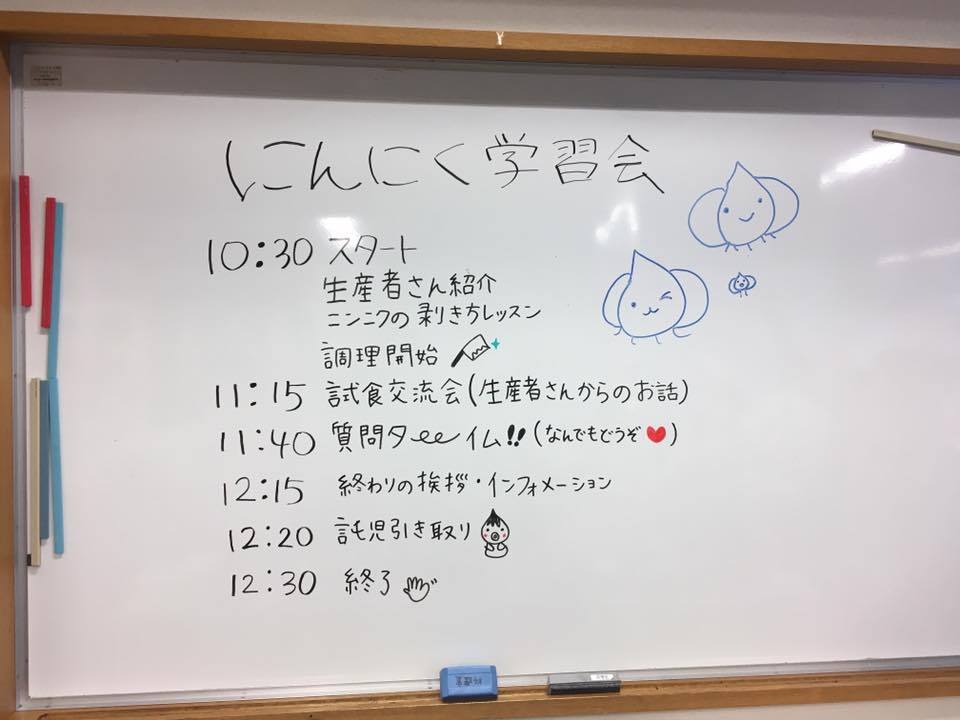 にんにく学習会
10:30 スタート
生産者さん紹介
ニンニクの剥き方レッスン
調理開始
11:15 試食交流会(生産者さんからのお話)
11:40 質問タeeイム!!(なんでもどうぞ♥)
12:15 終わりの挨拶・インフォメーション
12:20 託児引き取り
12:30 終了